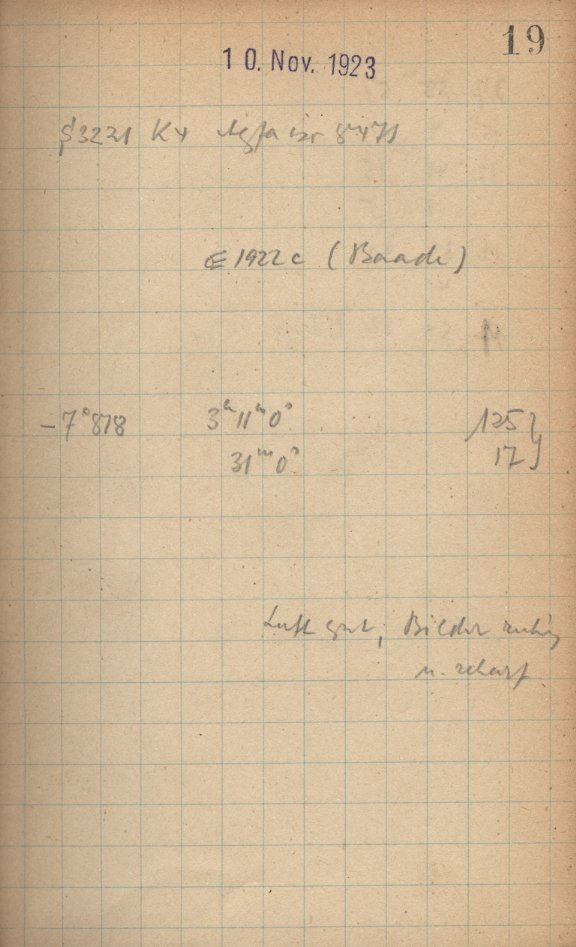 19
10. Nov. 1923
S 3221 K4 Agfa iso 8471
1922 c (Baade)
-7°818 3ʰ11ᵐ0ˢ 125 }
31ᵐ0ˢ 17 }
Luft gut, Bilder ruhig
u. scharf